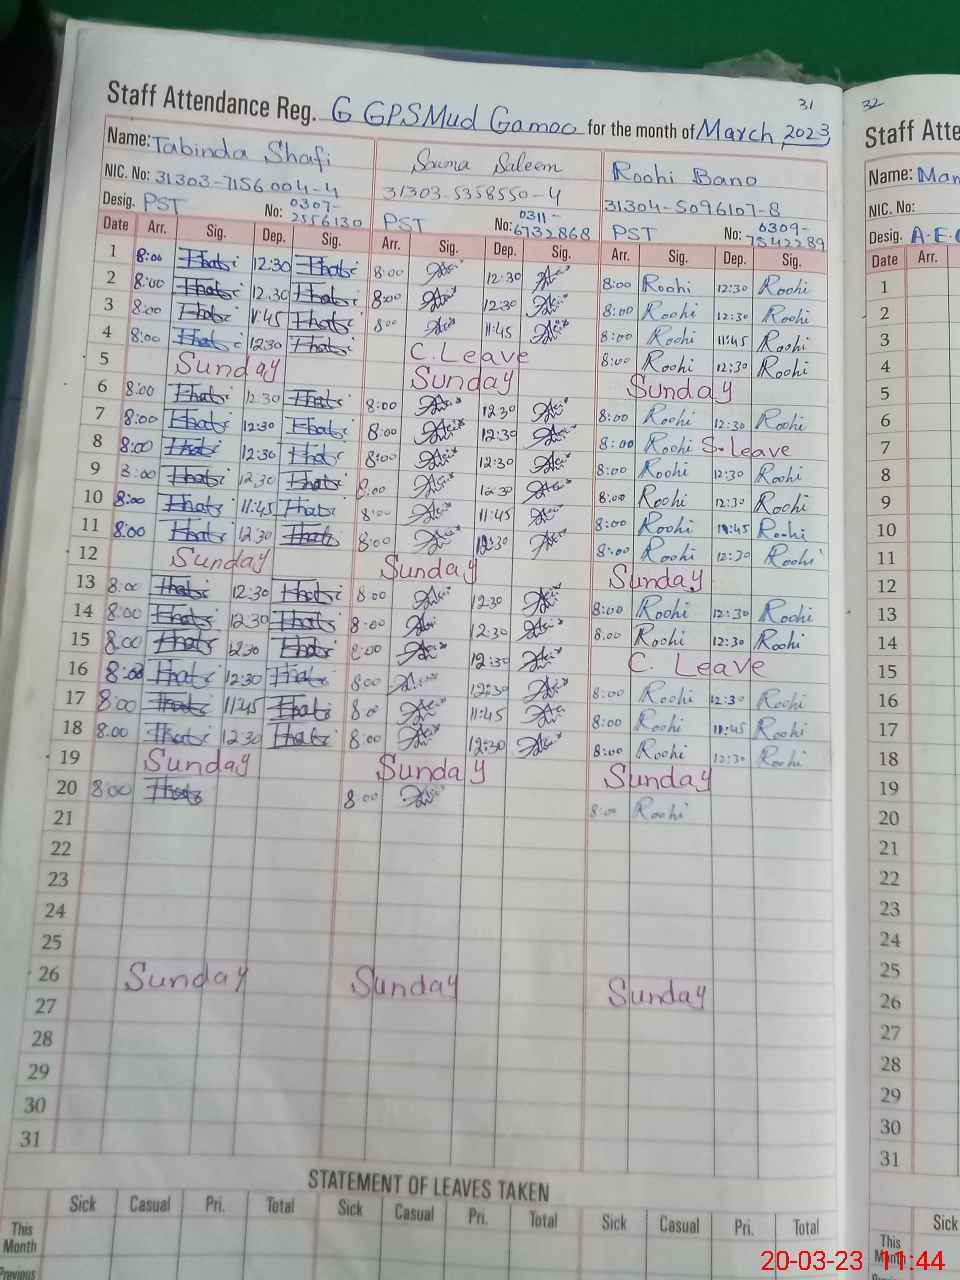 31
Staff Attendance Reg. G GPS Mud Gamoo for the month of March, 2023
Name: Tabinda Shafi Saima Saleem Roohi Bano
NIC. No: 31303-7156004-4 31303-5358550-4 31304-5096107-8
Desig. PST No: 0307-2556130 PST No: 0311-6732868 PST No: 0309-7542289
Date Arr. Sig. Dep. Sig. Arr. Sig. Dep. Sig. Arr. Sig. Dep. Sig.
1 8:00 12:30 8:00 12:30 8:00 Roohi 12:30 Roohi
2 8:00 12.30 8:00 12:30 8:00 Roohi 12:30 Roohi
3 8:00 11:45 8:00 11:45 8:00 Roohi 11:45 Roohi
4 8:00 12:30 C. Leave 8:00 Roohi 12:30 Roohi
5 Sunday Sunday Sunday
6 8:00 12:30 8:00 12:30 8:00 Roohi 12:30 Roohi
7 8:00 12:30 8:00 12:30 8:00 Roohi S. Leave
8 8:00 12:30 8:00 12:30 8:00 Roohi 12:30 Roohi
9 8:00 12.30 8:00 12:30 8:00 Roohi 12:30 Roohi
10 8:00 11:45 8:00 11:45 8:00 Roohi 11:45 Roohi
11 8:00 12:30 8:00 12:30 8:00 Roohi 12:30 Roohi
12 Sunday Sunday Sunday
13 8:00 12:30 8:00 12:30 8:00 Roohi 12:30 Roohi
14 8:00 12:30 8:00 12:30 8:00 Roohi 12:30 Roohi
15 8:00 12:30 8:00 12:30 C. Leave
16 8:00 12:30 8:00 12:30 8:00 Roohi 12:30 Roohi
17 8:00 11:45 8:00 11:45 8:00 Roohi 11:45 Roohi
18 8:00 12:30 8:00 12:30 8:00 Roohi 12:30 Roohi
19 Sunday Sunday Sunday
20 8:00 8:00 8:00 Roohi
21
22
23
24
25
26 Sunday Sunday Sunday
27
28
29
30
31
STATEMENT OF LEAVES TAKEN
Sick Casual Pri. Total Sick Casual Pri. Total Sick Casual Pri. Total
This Month
Previous
32
Staff Atte
Name: Mar
NIC. No:
Desig. A.E.
Date Arr.
1
2
3
4
5
6
7
8
9
10
11
12
13
14
15
16
17
18
19
20
21
22
23
24
25
26
27
28
29
30
31
Sick
This
Month
20-03-23 11:44